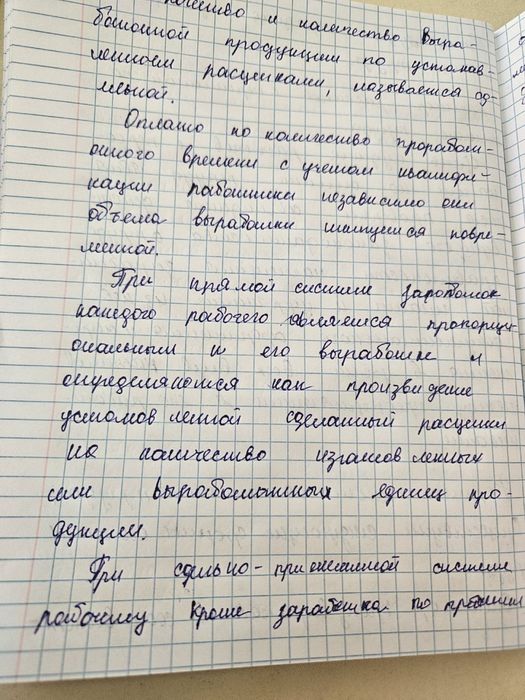 качество и количество выра-
ботанной продукции по установ-
ленным расценкам, называется сд-
льной.
Оплата по количество проработ-
анного времени с учетом квалифи-
кации работника независимо от
объема выработки повре-
менной.
При прямой системе заработок
каждого рабочего является пропорци
ональным к его выработке и
определяется как произведение
установленной сделанный расценки
на количество изготовленных
или выработанных единец про-
дукции.
При сдельно-премиальной системе
рабочему кроме заработка по прямым